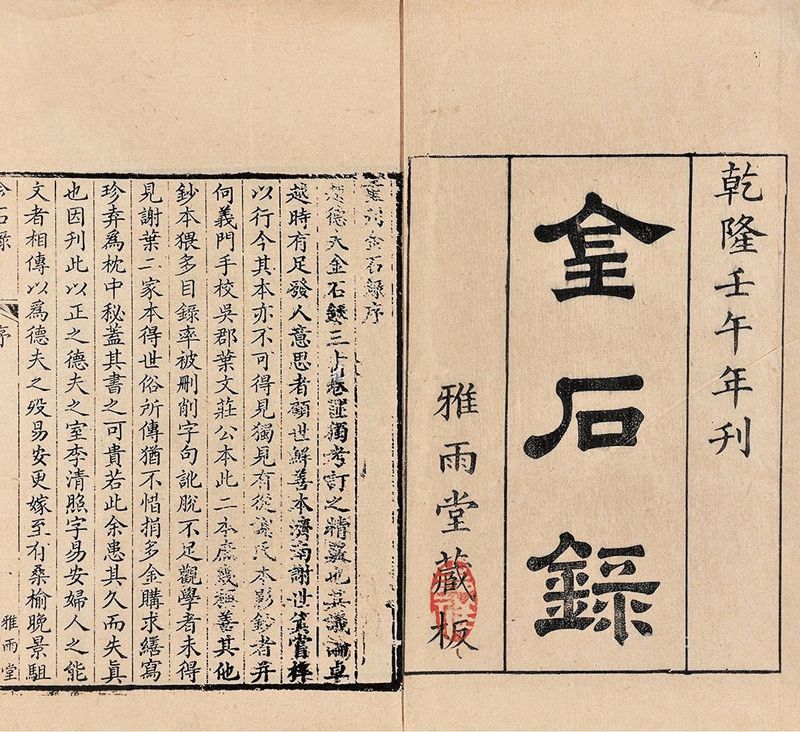 乾隆壬午年刊
金石錄
雅雨堂藏板
重刊金石錄序
趙德夫金石錄三十卷獨考訂之精覈也其議論卓
越時有足發人意思者顧世解善本濟南謝世箕嘗梓
以行今其本亦不可得見獨見有從謝氏本影鈔者并
何義門手校吳郡葉文莊公本此二本庶幾稱善其他
鈔本猥多目錄率被刪削字句訛脫不足觀學者未得
見謝葉二家本得世俗所傳猶不惜捐多金購求繕寫
珍弆爲枕中秘蓋其書之可貴若此余患其久而失真
也因刊此以正之德夫之室李清照字易安婦人之能
文者相傳以爲德夫之歿易安更嫁至有桑榆晚景駔
金石錄
序
雅雨堂